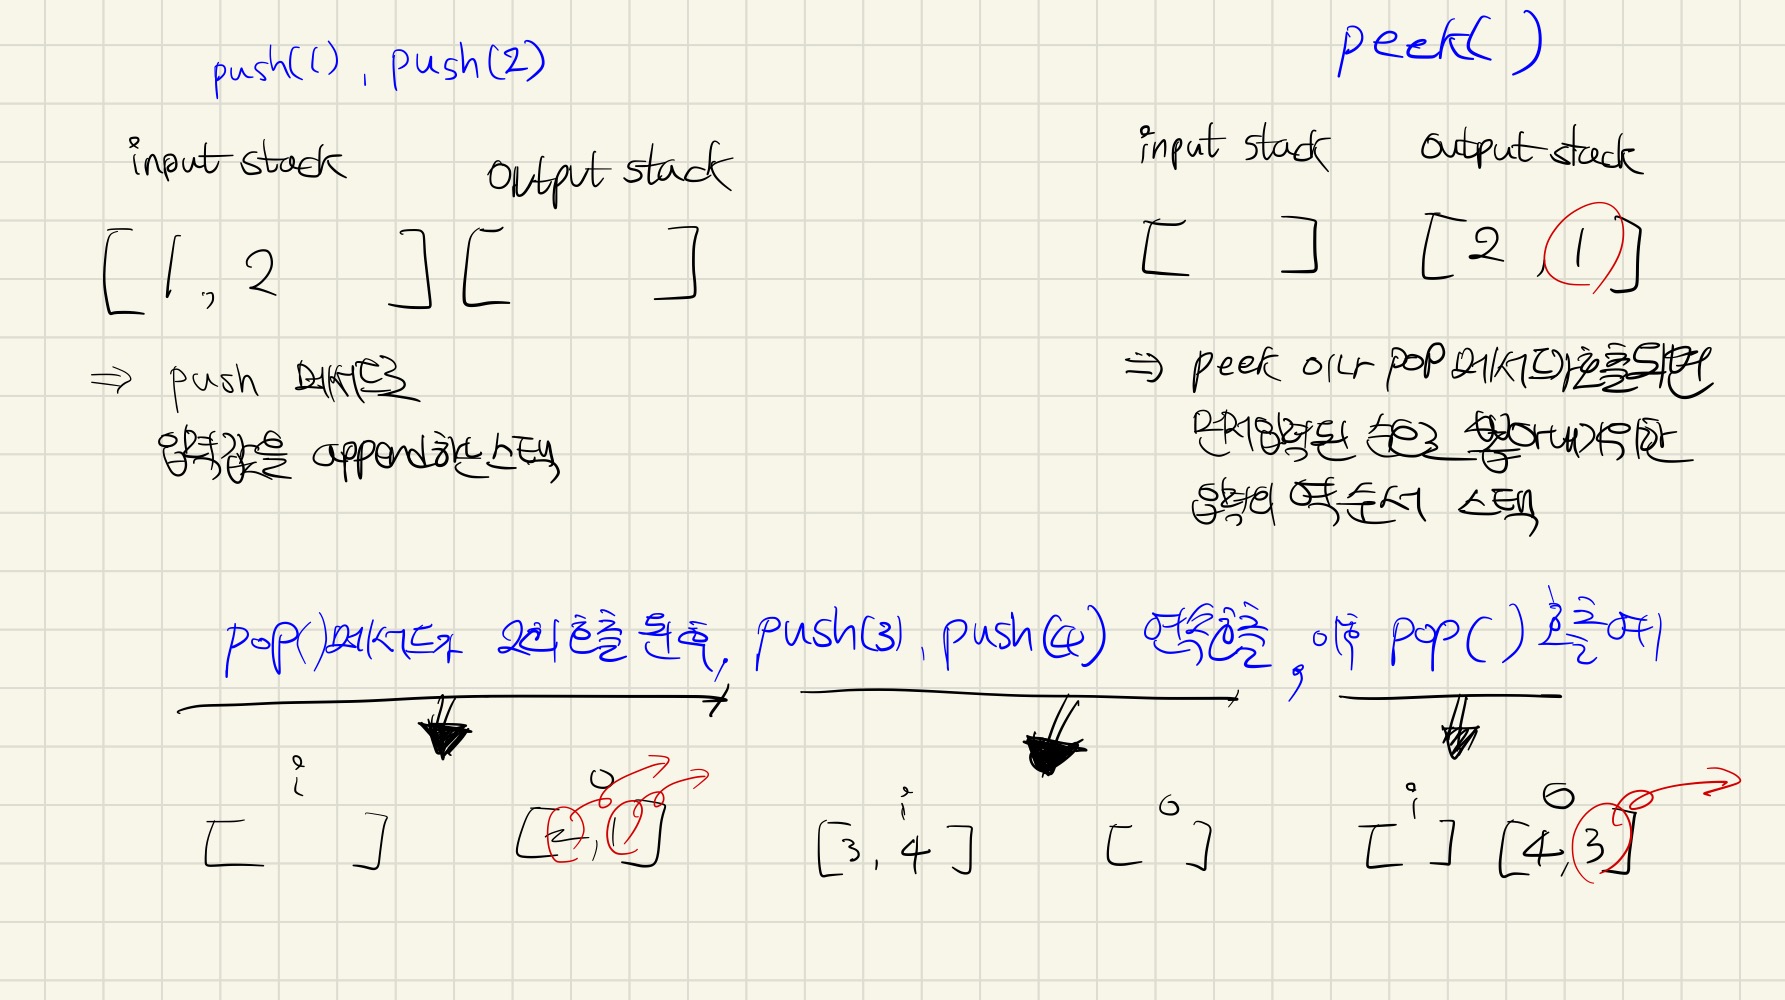 push(1), push(2)
input stack output stack
[1, 2 ] [ ]
⇒ push 메서드로
입력값을 append한 스택
peek()
input stack output stack
[ ] [2, 1]
⇒ peek 이나 pop 메서드가 호출되면
먼저 입력된 순으로 뽑아내기 위한
입력의 역순서 스택
pop()메서드가 2회 호출 된 후, push(3), push(4) 연속호출, 이후 pop() 호출 예시
i o i o i o
[ ] [2, 1] [3, 4] [ ] [ ] [4, 3]